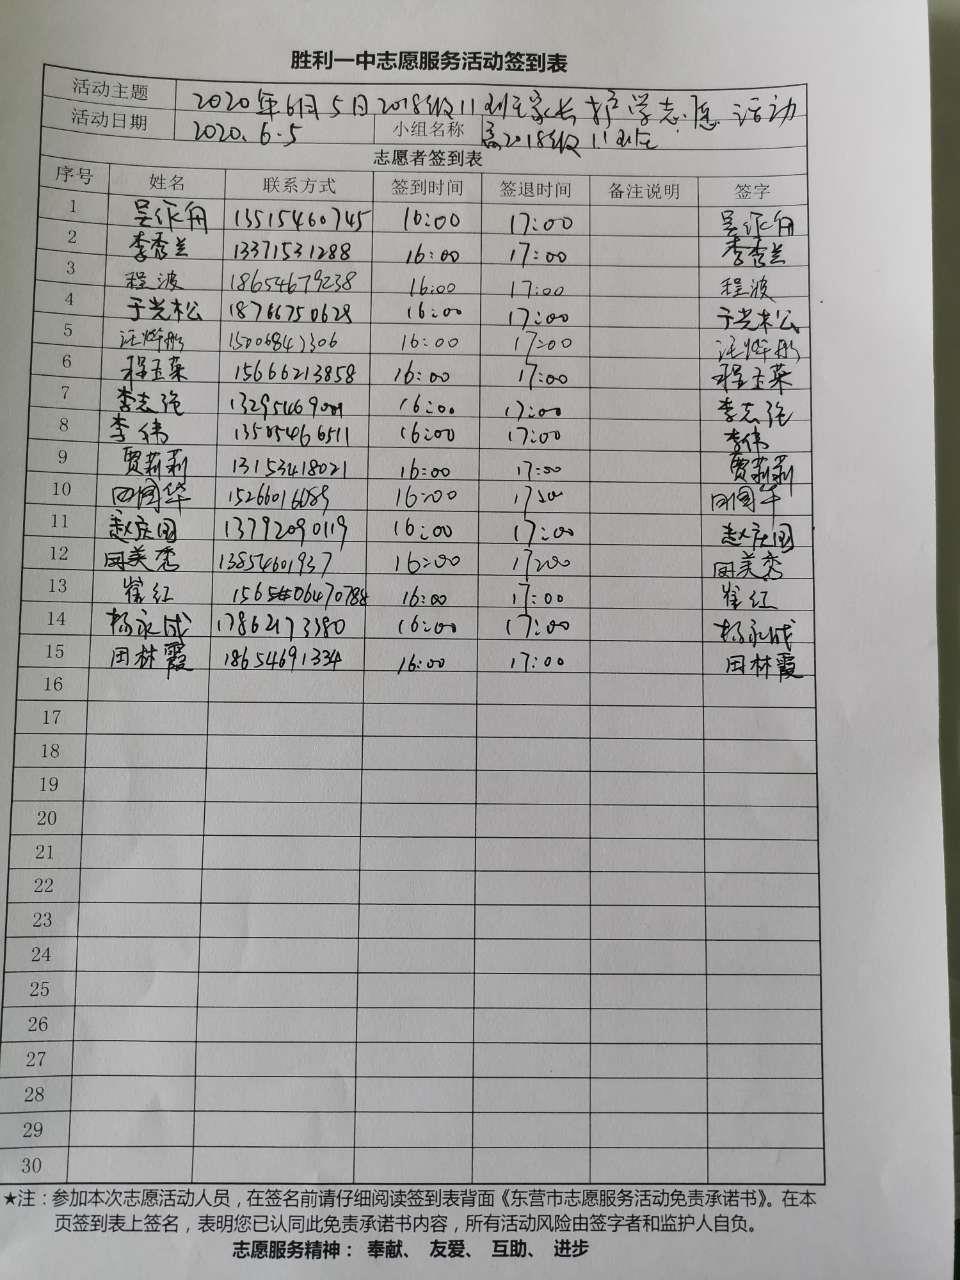 胜利一中志愿服务活动签到表
活动主题 2020年6月5日2018级11班家长护学志愿活动
活动日期 2020.6.5 小组名称 高2018级11班
志愿者签到表
序号 姓名 联系方式 签到时间 签退时间 备注说明 签字
1 13515460745 16:00 17:00
2 李秀兰 13371531288 16:00 17:00 李秀兰
3 程波 18654679238 16:00 17:00 程波
4 于光松 18766750628 16:00 17:00 于光松
5 15006847306 16:00 17:00
6 程玉荣 15666213858 16:00 17:00 程玉荣
7 李志强 16:00 17:00 李志强
8 李伟 13505466511 16:00 17:00 李伟
9 贾莉莉 13153418021 16:00 17:00 贾莉莉
10 田国华 15266016089 16:00 17:00 田国华
11 赵庆国 13792090119 16:00 17:00 赵庆国
12 田美秀 13854601937 16:00 17:00 田美秀
13 崔红 16:00 17:00 崔红
14 杨永成 17862173380 16:00 17:00 杨永成
15 田林霞 18654691334 16:00 17:00 田林霞
16
17
18
19
20
21
22
23
24
25
26
27
28
29
30
★注：参加本次志愿活动人员，在签名前请仔细阅读签到表背面《东营市志愿服务活动免责承诺书》。在本
页签到表上签名，表明您已认同此免责承诺书内容，所有活动风险由签字者和监护人自负。
志愿服务精神： 奉献、 友爱、 互助、 进步